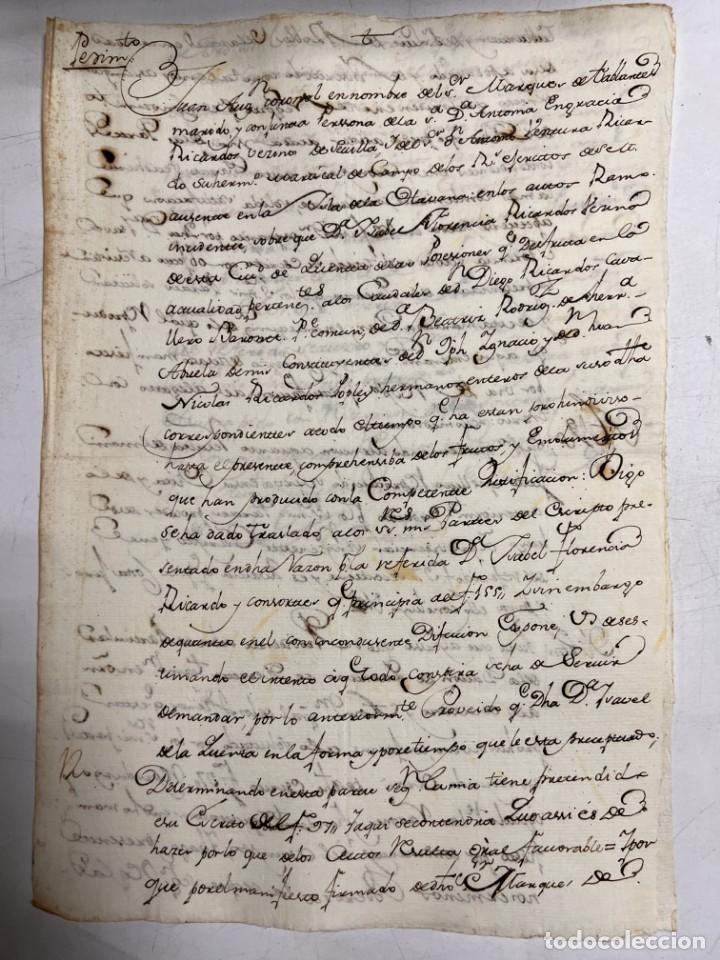 Pedim.to
Juan Aug.n Coronel en nombre del s.or Marques de Vallantes
marido y conjunta Perssona de la s.a D.a Antonia Engracia
Ricardos vezino de Sevilla y del s.or D.n Antonio Ventura Ricar-
do su herm.o Mariscal de Campo de los R.s exercitos de
ausente en la Isla de la Havana: en los autos Ramo
incidente, sobre que D.a Isabel Florencia Ricardos Vezina
de esta Ciu.d de quenta de las Posesiones q.e disfruta en la
actualidad pertenec.tes a los Caudales de d.n Diego Ricardos Cava-
llero P.e comun, de d.a Beatriz Rodrig.z de Herr.a
Abuela de mis y de d.n Jph. Ignacio y de d.n Juan
Nicolas Ricardos hermanos enteros de la suso dha
correspondientes a todo el tiempo q.e ha estan prohindiviso
hasta el presente, comprehensiba de los frutos y Emolumentos
que han producido con la Competente Justificacion: Digo
se ha dado traslado a los ss.res mis Partes del Escripto pre-
sentado en dha razon p.r la referida D.a Isabel Florencia
Ricardo y consortes q.e principia al f.o 155,, Y sin embargo
de quanto en el con inconducente Difucion Expone, V.S. deses-
timando el intento aiq.e todo conspira se ha de Servir
demandar por lo anteriorm.te Proveido q.e Dha D.a Isavel
de la Quenta en la forma y por el tiempo que le esta preceptuado;
Determinando en esta parte seg.n la mia tiene pretendido
en su Escrito del f.o 97,, y aqui se contendria Que assi es de
hazer por lo que de los Autos Resulta gral favorable = Y por
que por el manifiesto firmado de dho s.or Marques de
todocoleccion.net